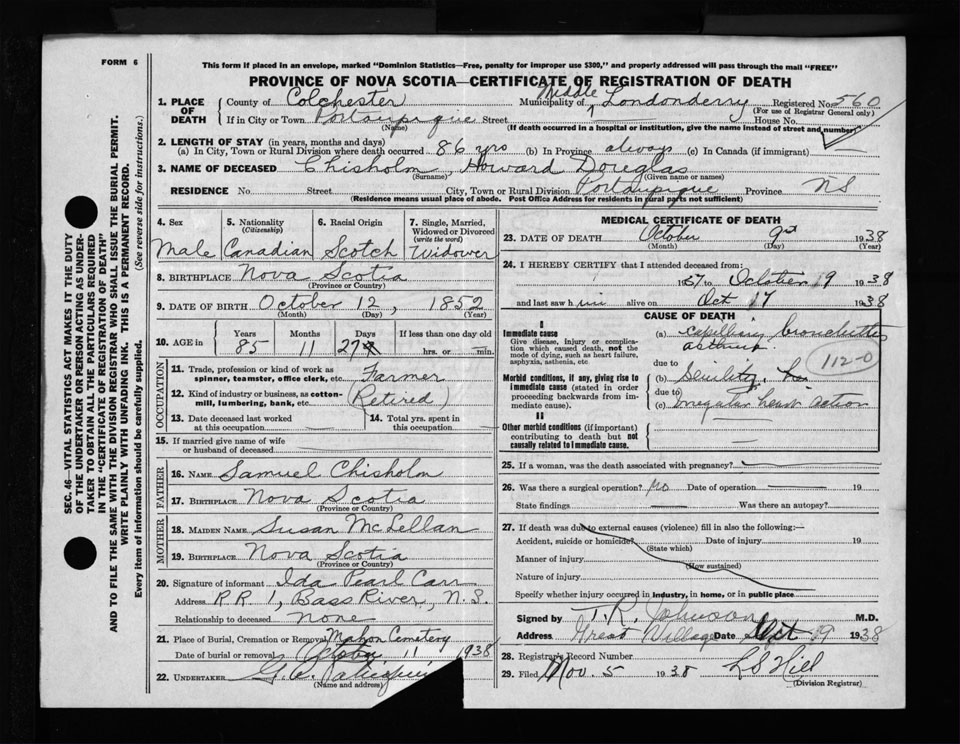 FORM 6
This form if placed in an envelope, marked "Dominion Statistics—Free, penalty for improper use $300," and properly addressed will pass through the mail "FREE"
PROVINCE OF NOVA SCOTIA—CERTIFICATE OF REGISTRATION OF DEATH
1. PLACE OF DEATH County of Colchester Municipality of Middle Londonderry Registered No. 560
(For use of Registrar General only)
If in City or Town Portaupique Street House No.
(Name) (If death occurred in a hospital or institution, give the name instead of street and number)
2. LENGTH OF STAY (in years, months and days)
(a) In City, Town or Rural Division where death occurred 86 yrs (b) In Province always (c) In Canada (if immigrant)
3. NAME OF DECEASED Chisholm, Howard Douglas
(Surname) (Given name or names)
RESIDENCE No. Street City, Town or Rural Division Portaupique Province NS
(Residence means usual place of abode. Post Office Address for residents in rural parts not sufficient)
4. Sex Male
5. Nationality (Citizenship) Canadian
6. Racial Origin Scotch
7. Single, Married, Widowed or Divorced (write the word) Widower
8. BIRTHPLACE Nova Scotia
(Province or Country)
9. DATE OF BIRTH October 12, 1852
(Month) (Day) (Year)
10. AGE in Years Months Days If less than one day old
85 11 27 hrs. or min.
OCCUPATION
11. Trade, profession or kind of work as spinner, teamster, office clerk, etc. Farmer
12. Kind of industry or business, as cotton-mill, lumbering, bank, etc. (Retired)
13. Date deceased last worked at this occupation
14. Total yrs. spent in this occupation
15. If married give name of wife or husband of deceased
FATHER
16. NAME Samuel Chisholm
17. BIRTHPLACE Nova Scotia
(Province or Country)
MOTHER
18. MAIDEN NAME Susan McLellan
19. BIRTHPLACE Nova Scotia
(Province or Country)
20. Signature of informant Ida Pearl Carr
Address RR 1, Bass River, N.S.
Relationship to deceased none
21. Place of Burial, Cremation or Removal Mahon Cemetery
Date of burial or removal October 11 1938
22. UNDERTAKER
(Name and address)
MEDICAL CERTIFICATE OF DEATH
23. DATE OF DEATH October 9 1938
(Month) (Day) (Year)
24. I HEREBY CERTIFY that I attended deceased from:
1937 to October 19 1938
and last saw him alive on Oct 17 1938
CAUSE OF DEATH
I
Immediate cause
Give disease, injury or complication which caused death, not the mode of dying, such as heart failure, asphyxia, asthenia, etc
(a) capillary bronchitis
asthma
112-0
due to
Morbid conditions, if any, giving rise to immediate cause (stated in order proceeding backwards from immediate cause).
(b) senility
due to
(c) irregular heart action
II
Other morbid conditions (if important) contributing to death but not causally related to immediate cause.
25. If a woman, was the death associated with pregnancy?
26. Was there a surgical operation? no Date of operation 19
State findings Was there an autopsy?
27. If death was due to external causes (violence) fill in also the following:—
Accident, suicide or homicide? Date of injury 19
(State which)
Manner of injury
(How sustained)
Nature of injury
Specify whether injury occurred in industry, in home, or in public place
Signed by T.R. Johnson M.D.
Address Great Village Date Oct 19 1938
28. Registrar's Record Number
29. Filed Nov. 5 1938 LS Hill
(Division Registrar)
SEC. 46—VITAL STATISTICS ACT MAKES IT THE DUTY
OF THE UNDERTAKER OR PERSON ACTING AS UNDERTAKER TO OBTAIN ALL THE PARTICULARS REQUIRED
IN THE "CERTIFICATE OF REGISTRATION OF DEATH"
AND TO FILE THE SAME WITH THE DIVISION REGISTRAR WHO SHALL ISSUE THE BURIAL PERMIT.
WRITE PLAINLY WITH UNFADING INK. THIS IS A PERMANENT RECORD.
Every item of information should be carefully supplied. (See reverse side for instructions.)